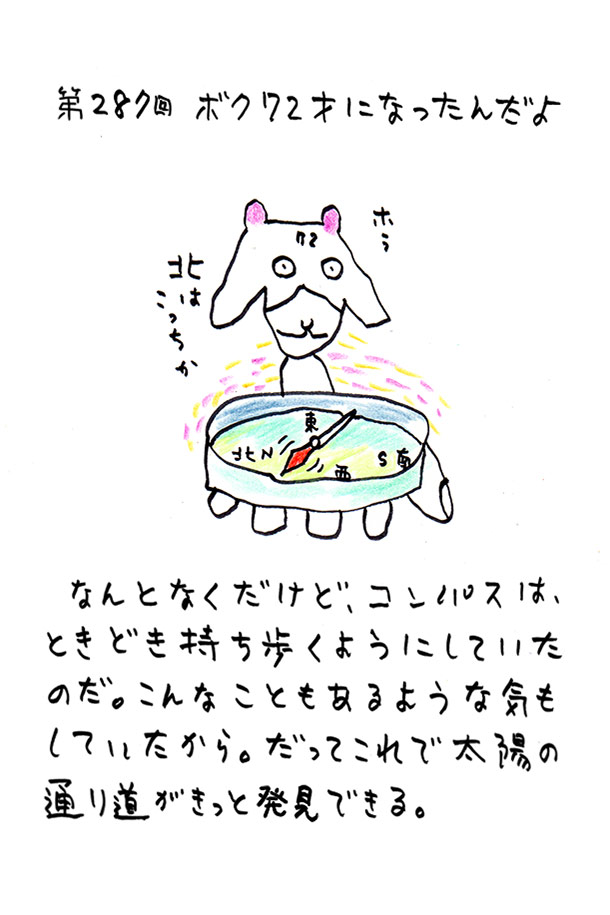 第287回 ボク72才になったんだよ
ホう
72
北は
こっちか
東
北N
S南
西
なんとなくだけど、コンパスは、
ときどき持ち歩くようにしていた
のだ。こんなこともあるような気も
していたから。だってこれで太陽の
通り道がきっと発見できる。